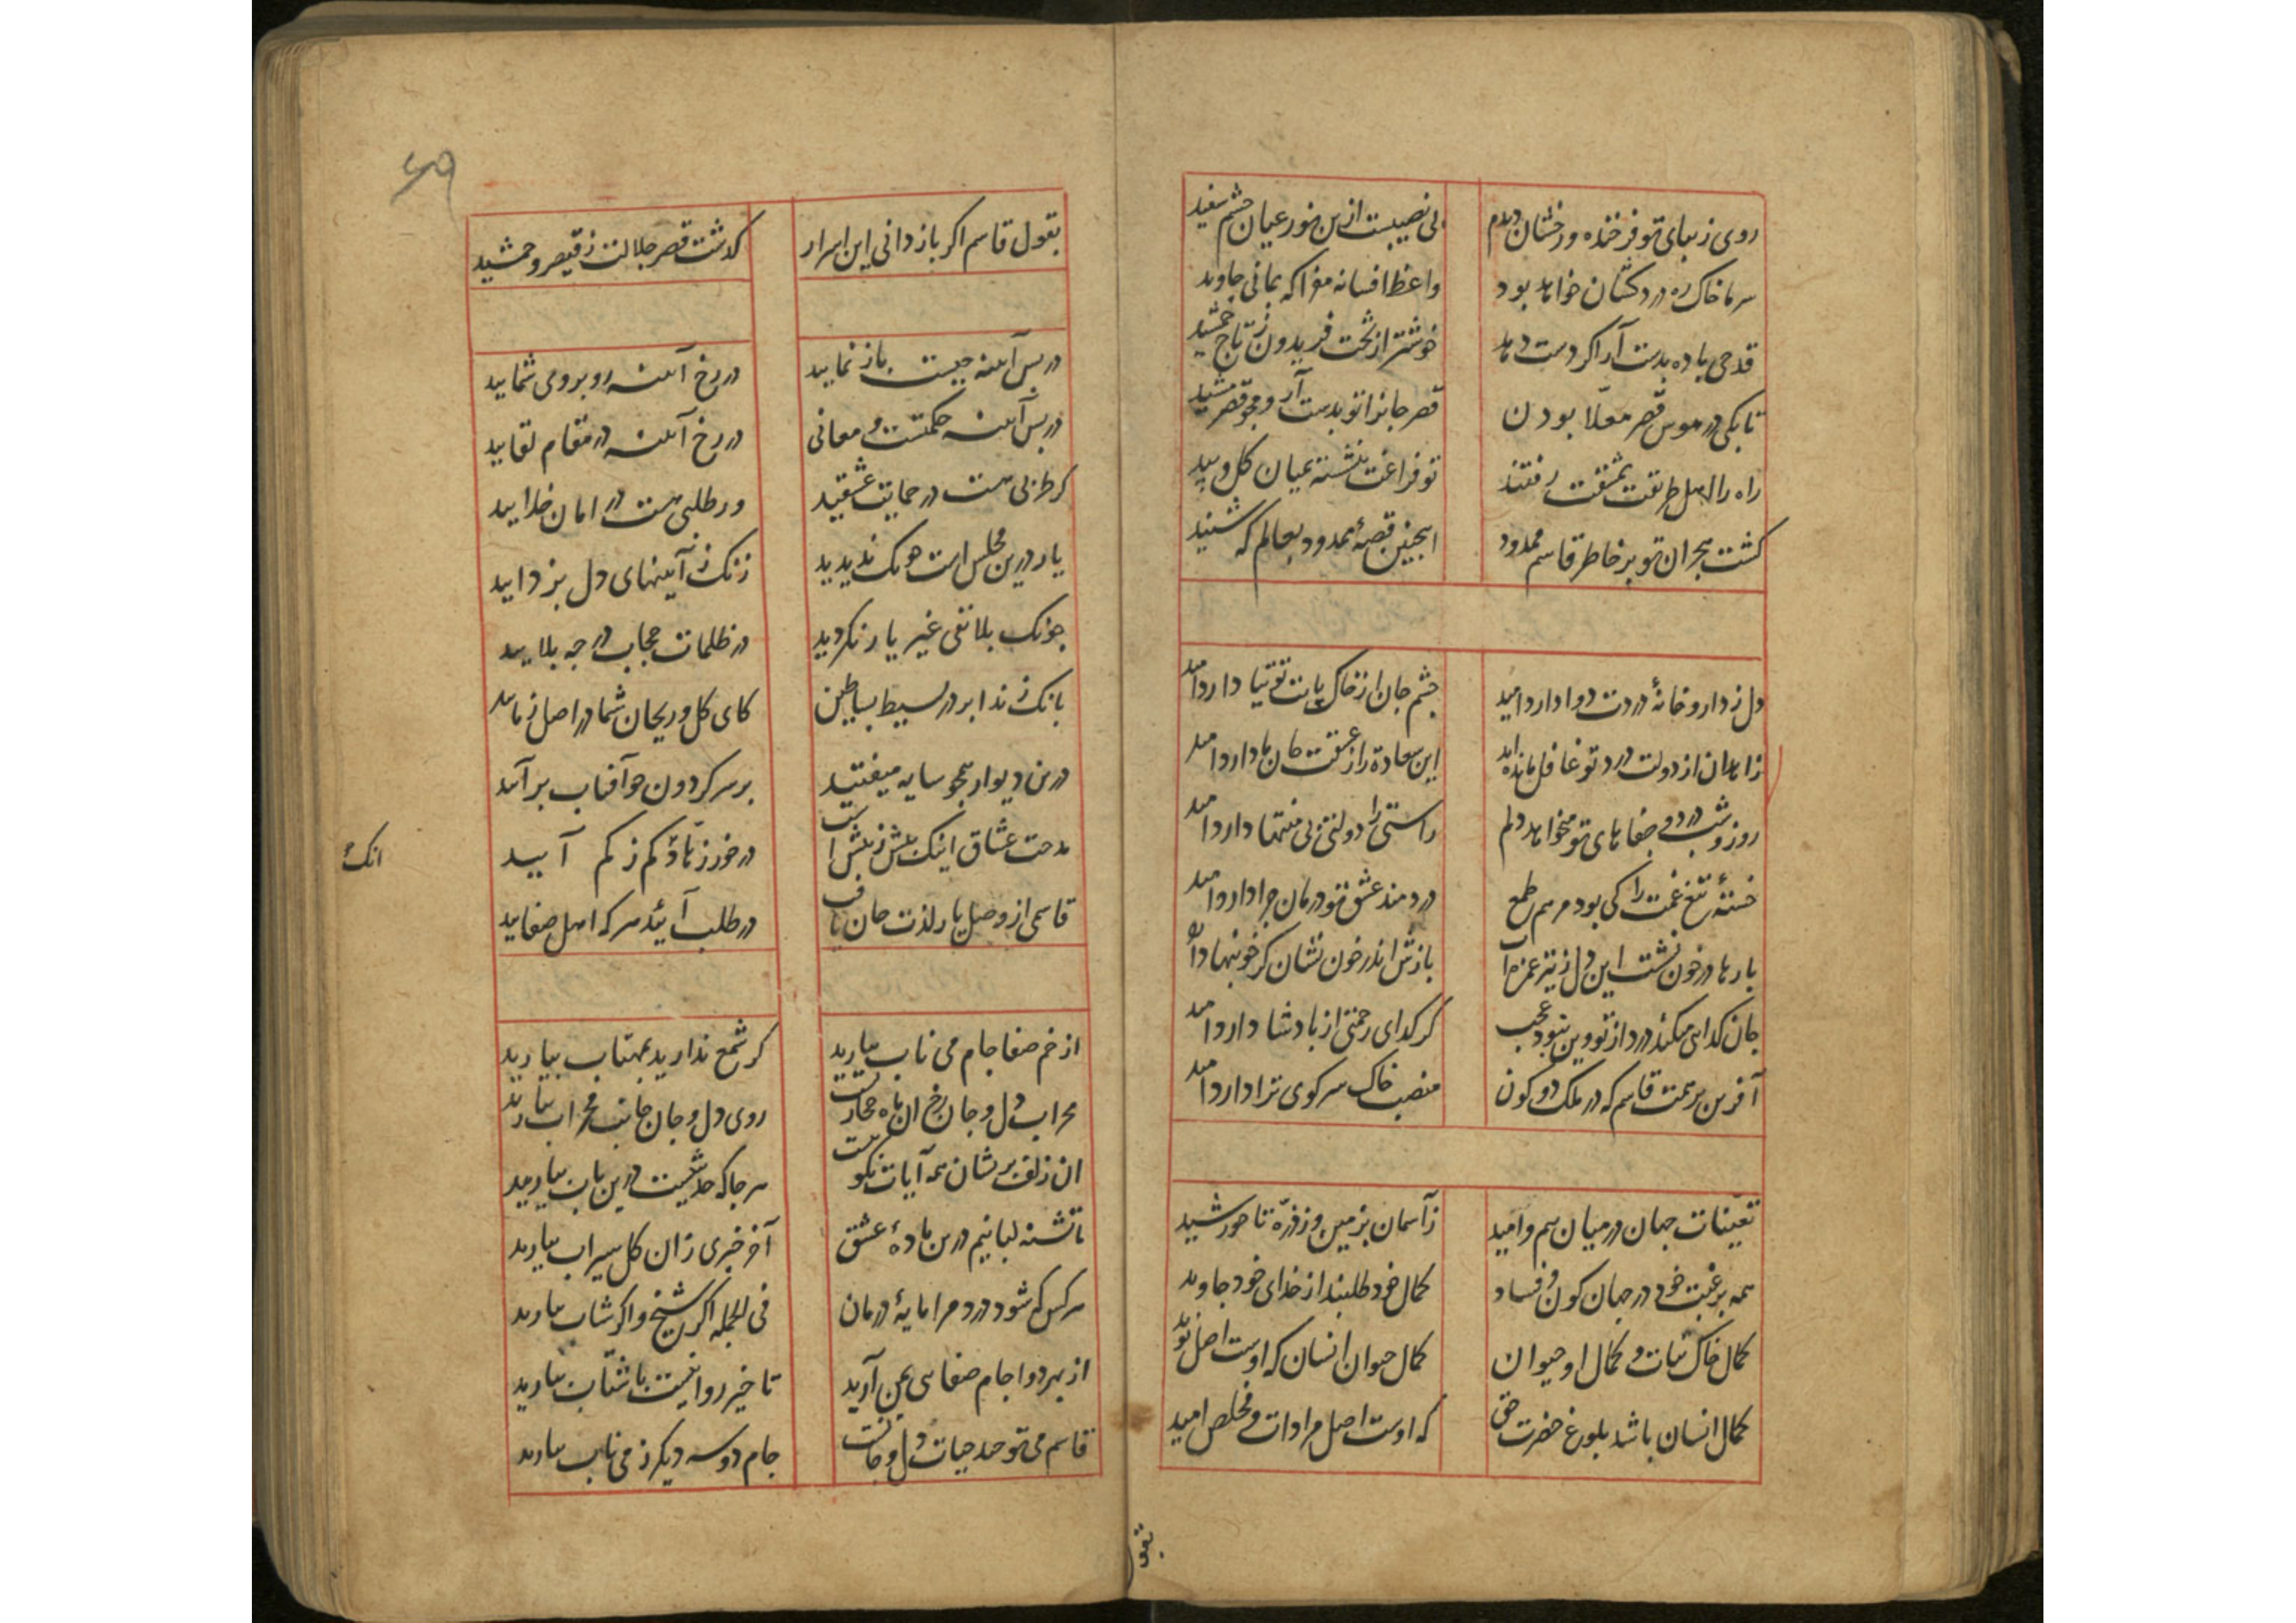 روی زیبای تو فرخنده و رخشان دیدم بی نصیبست ازین نور عیان چشم سفید
سر ما خاک ره دردکشان خواهد بود واعظ افسانه مخوا که بمانی جاوید
قدحی باده بدست آر اکر دست دهد خوشتر از تخت فریدون ز تاج جمشید
تا بکی در هوس قصر معلّا بودن قصر جانرا تو بدست آر و مجو قصر مشید
راه را اهل طریقت بمشقت رفتند تو فراغت بنشسته بمیان کل و بید
کشت هجران تو بر خاطر قاسم ممدود اینچنین قصهٔ ممدود بعالم که شنید
دل ز داروخانهٔ دردت دوا دارد امید چشم جان از خاک پایت توتیا دارد امید
زاهدان از دولت درد تو غافل مانده اند این سعادة را ز عشقت جان ما دارد امید
روز و شب درد و جفاهای تو میخواهد دلم راستی را دولتی بی منتها دارد امید
خستهٔ تیغ غمت را کی بود مرهم طمع دردمند عشق تو درمان چرا دارد امید
بارها در خون نشست این دل ز تیر غمزه ات بازش اندر خون نشان کر خونبها دارد
جان کدایی میکند درد از تو وین نبود عجب کر کدای رحمتی از پادشا دارد امید
آفرین بر همت قاسم که در ملک دو کون منصب خاک سر کوی ترا دارد امید
تعیّنات جهان در میان بیم و امید ز آسمان بزمین و ز ذرّه تا خورشید
همه برغبت خود در جهان کون و فساد کمال خود طلبند از خدای خود جاوید
کمال خاک نبات و کمال او حیوان کمال حیوان انسان که اوست اصل نوید
کمال انسان باشد بلوغ حضرت حق که اوست اصل مرادات و مخلص امید
بقول قاسم اکر بازدانی این اسرار کذشت قصر جلالت ز قیصر و جمشید
در پس آینه چیست باز نمایید در رخ آینه روبرو می شمایید
در پس آینه حکمتست و معانی در رخ آینه در مقام لقایید
کر طربی هست در حمایت عشقید ور طلبی هست در امان خدایید
یار درین مجلس است هیک ندیدید زنک ز آیینهای دل بزدایید
چونک بلا نفی غیر یار نکردید در ظلمات حجاب در چه بلایید
بانک ز ندا بر در بسیط بساطین کای کل و ریحان شما در اصل زمایید
درین دیوار همچو سایه میفتید بر سر کردون چو آفتاب برآیید
مدحت عشاق اینک بیش ز بیش است در خور زهّاد کم ز کم آیید
قاسمی از وصل یار لذت جان یافت در طلب آیید هر که اهل صفایید
از خم صفا جام می ناب بیارید کر شمع ندارید بمهتاب بیارید
محراب دل و جان رخ ان ماه حجازست روی دل و جان جانب محراب بیارید
ان زلف پریشان همه آیات نکوست هر جا که حدیثیست درین باب بیارید
ما تشنه لبانیم درین بادهٔ عشق آخر خبری زان کل سیراب بیارید
هر کس که شود درد مرا مایهٔ درمان فی الجمله اکر شیخ و اکر شاب بیارید
از بهر دوا جام صفایی بمن آرید تا خیر روا نیست باشتاب بیارید
قاسم می توحید حیات دل و جانست جام دو سه دیکر ز می ناب بیارید